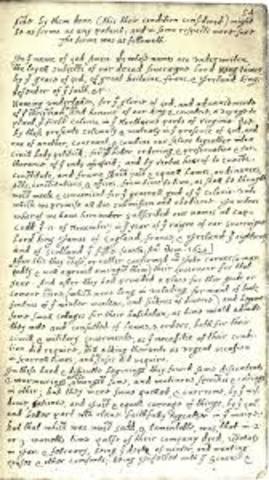 54
by them done (this their condition considered) might
be as firme as any patent; and in some respects more sure
The forme was as followeth.
In ye name of god Amen. we whose names are underwriten,
the loyall subjects of our dread soveraigne Lord King James
by ye grace of god, of great britaine, franc, & Ireland king,
defender of ye faith, &c
Haveing undertaken, for ye glorie of god, and advancemente
of ye christian faith and honour of our king & countrie, a voyage to
plant ye first colonie in ye Northerne parts of virginia. doe
by these presents solemnly & mutualy in ye presence of god, and
one of another, covenant, & combine our selves togeather into a
civill body politick; for our better ordering, & preservation & fur-
therance of ye ends aforesaid; and by vertue hearof to enacte,
constitute, and frame shuch just & equall lawes, ordinances,
Acts, constitutions, & offices, from time to time, as shall be thought
most meete & convenient for ye generall good of ye colonie: unto
which we promise all due submission and obedience. In witnes
wherof we have hereunder subscribed our names at cap-
Codd ye .11. of November, in ye year of ye raigne of our soveraigne
Lord king James of England, france, & Ireland ye eighteenth
and of Scotland ye fiftie fourth. Ano: Dom. 1620.
After this they chose, or rather confirmed mr John carver (a man
godly & well approved amongst them) their Governour for that
year. And after they had provided a place for their goods or
comone store
and begune
some small cottages for their habitation, as time would admitte
they mette and consulted of lawes, & orders, both for their
civill & military Governmente, as ye necessitie of their condi-
tion did require, still adding therunto as urgent occasion
in severall times, and as cases did require.
In these hard & difficulte beginings they found some discontents
& murmurings amongst some, and mutinous speeches & carriages
in other; but they were soone quelled, & overcome, by ye wis-
dome, patience, and just & equall carrage of things, by ye Govr
and better part which clave faithfully togeather in ye maine.
But that which was most sadd, & lamentable, was, that in 2.
or 3. moneths time halfe of their company dyed, espetialy
in Jan: & february, being ye depth of winter, and wanting
houses & other comforts; being Infected with ye Scurvie &